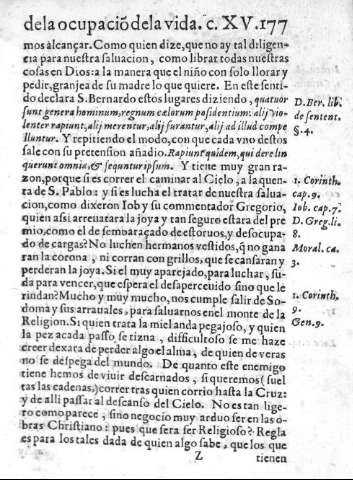 de la ocupaciõ de la vida. c. XV. 177
mos alcançar. Como quien dize, que no ay tal diligen-
cia para nuestra saluacion, como librar todas nuestras
cosas en Dios: a la manera que el niño con solo llorar y
pedir, granjea de su madre lo que quiere. En este senti-
do declara S. Bernardo estos lugares diziendo, quatuor
sunt genera hominum, regnum cælorum possidentium: alij vio-
lenter rapiunt, alij merentur, alij furantur, alij ad illud compe
lluntur. Y repitiendo el modo, con que cada vno destos
sale con su pretension añadio. Rapiunt quidem, qui derelin
querunt omnia, & sequuntur ipsum. Y tiene muy gran ra-
zon, porque si es correr el caminar al Cielo, a la quen-
ta de S. Pablo: y si es lucha el tratar de nuestra salua-
cion, como dixeron Iob y su commentador Gregorio,
quien assi arreuatara la joya y tan seguro estara del pre
mio, como el desembaraçado de estoruos, y desocupa-
do de cargas? No luchen hermanos vestidos, q̃ no gana
ran la corona, ni corran con grillos, que se cansaran y
perderan la joya. Si el muy aparejado, para luchar, su-
da para vencer, que espera el desapercebido sino que le
rindan? Mucho y muy mucho, nos cumple salir de So-
doma y sus arrauales, para saluarnos en el monte de la
Religion. Si quien trata la miel anda pegajoso, y quien
la pez a cada passo, se tizna, difficultoso se me haze
creer dexara de perder algo el alma, de quien de veras
no se despega del mundo. De quanto este enemigo
tiene hemos de viuir descarnados, si queremos (suel
tas las cadenas) correr tras quien corrio hasta la Cruz:
y de alli passar al descanso del Cielo. No es tan lige-
ro como parece, sino negocio muy arduo ser en las o-
bras Christiano: pues que sera ser Religioso? Regla
es para los tales dada de quien algo sabe, que los que
Z tienen
D. Ber. lib.
de sentent.
§. 4.
1. Corinth.
cap. 9.
Iob. cap. 7.
D. Greg. li.
8.
Moral. ca.
3.
1. Corinth.
9.
Gen. 9.